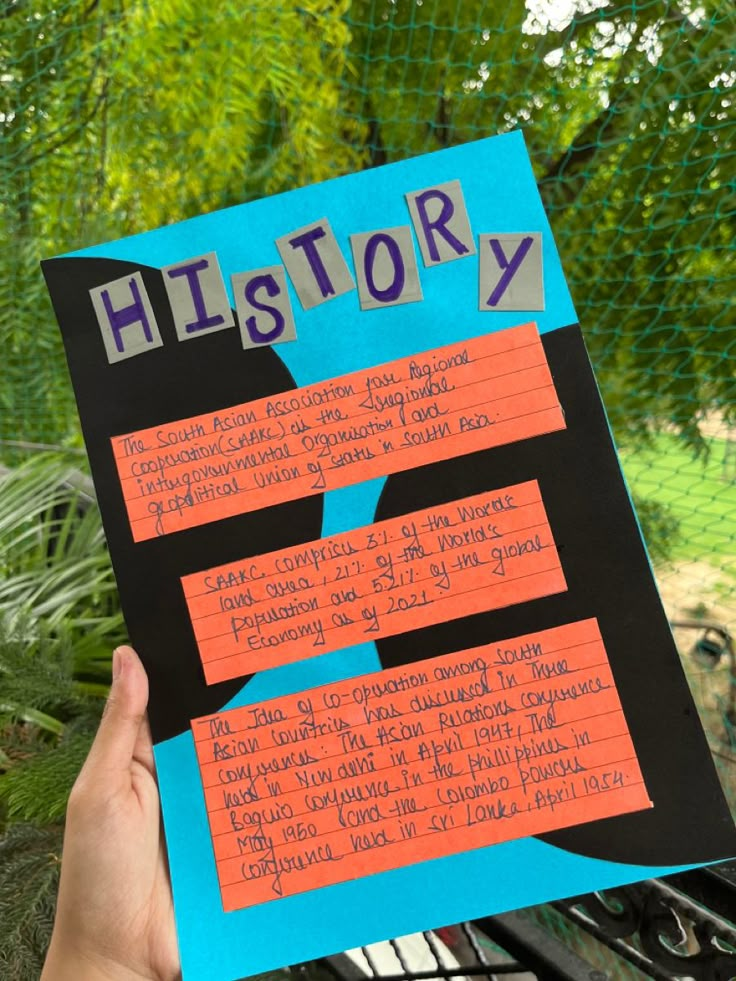 HISTORY
The South Asian Association for Regional
cooperation(SAARC) is the regional
intergovernmental Organisation and
geopolitical Union of states in South Asia.
SAARC comprises 3% of the World's
land area, 21% of the World's
population and 5.21% of the global
Economy as of 2021.
The Idea of co-operation among South
Asian Countries was discussed in Three
conferences: The Asian Relations conference
held in New delhi in April 1947, The
Baguio conference in the philippines in
May 1950 and the Colombo powers
conference held in Sri Lanka, April 1954.